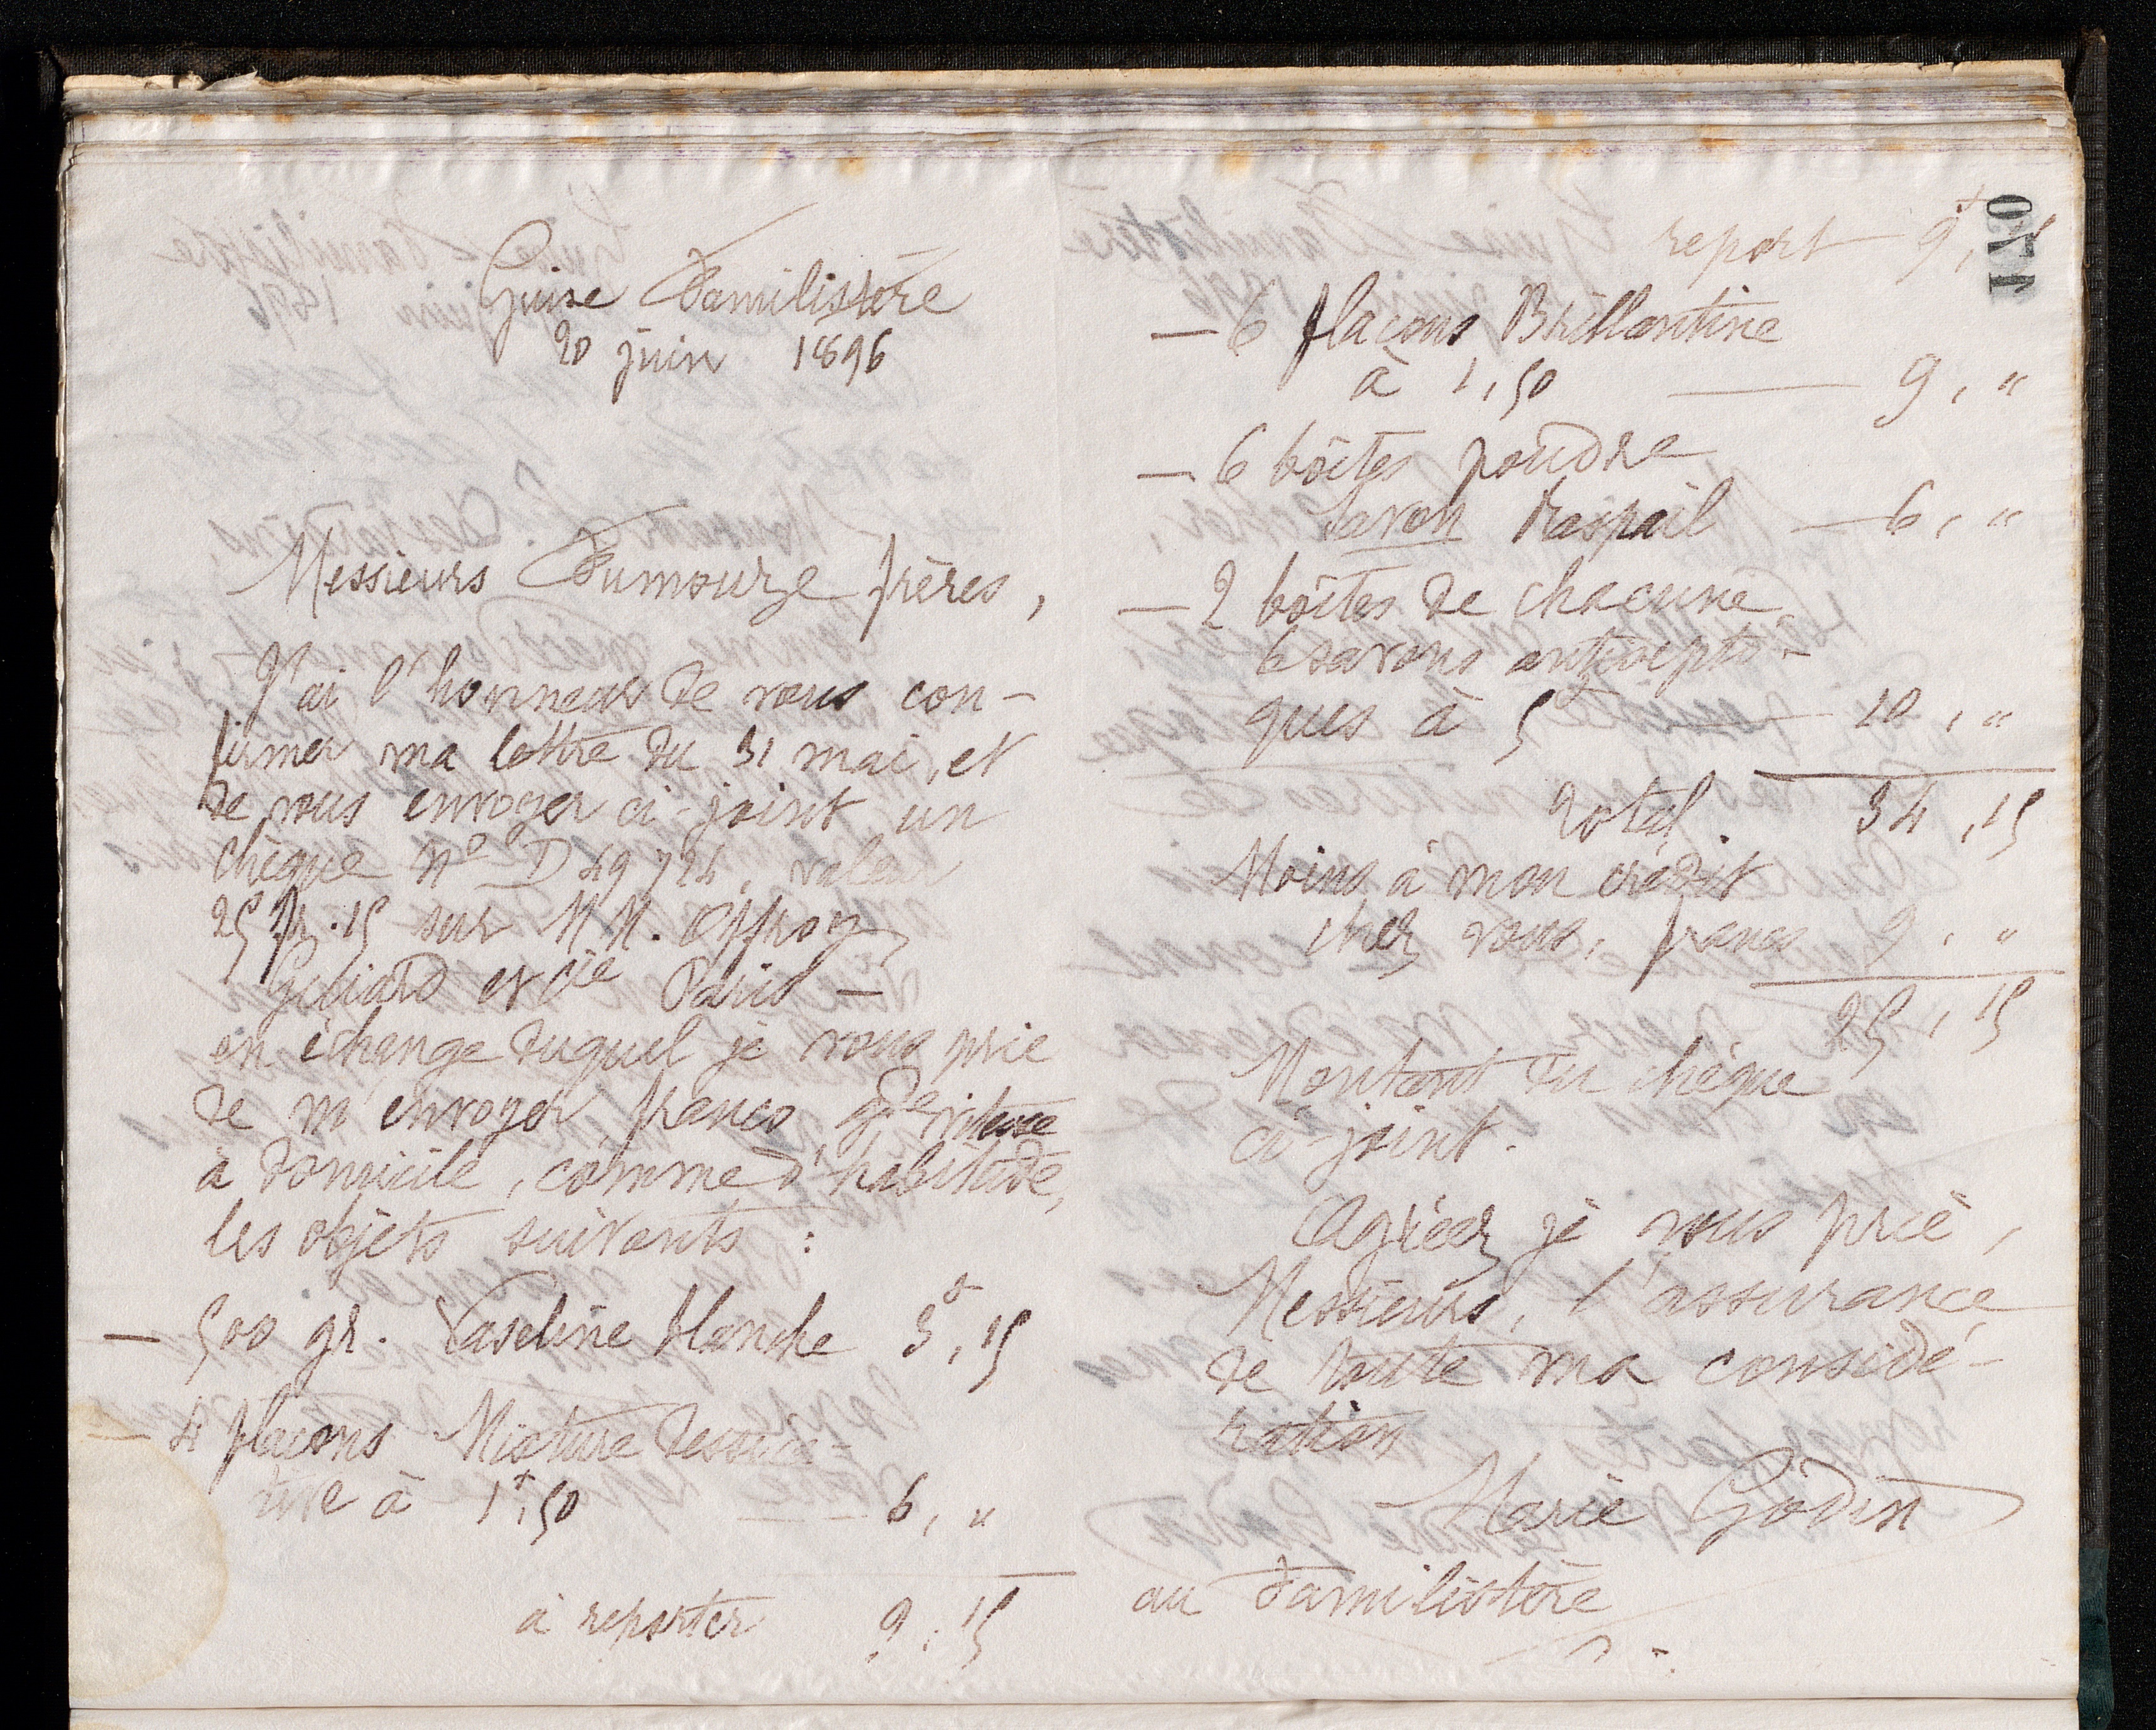 Guise Familistère
20 juin 1896
Messieurs Fumouze frères,
J'ai l'honneur de vous con-
firmer ma lettre du 31 mai, et
de vous envoyer ci-joint un
chèque N° D 49724, valeur
25 fr. 15 sur M M. Offroy,
Guiard et Cie Paris –
en échange duquel je vous prie
de m'envoyer, franco, gde vitesse
à domicile, comme d'habitude,
les objets suivants :
– 500 gr. Vaseline blanche 3f,15
– 4 flacons Mixture dessica-
tive à 1f,50 — 6, "
à reporter 9,15
170
report 9f,15
– 6 flacons Brillantine
à 1,50 — 9, "
– 6 boîtes poudre
savon Raspail — 6, "
– 2 boîtes de chacune
6 savons antisepti-
ques à 5f — 10, "
Total. 34,15
Moins à mon crédit
chez vous, francs 9, "
25,15
Montant du chèque
ci-joint.
Agréez je vous prie,
Messieurs, l'assurance
de toute ma considé-
ration
Marie Godin
au Familistère